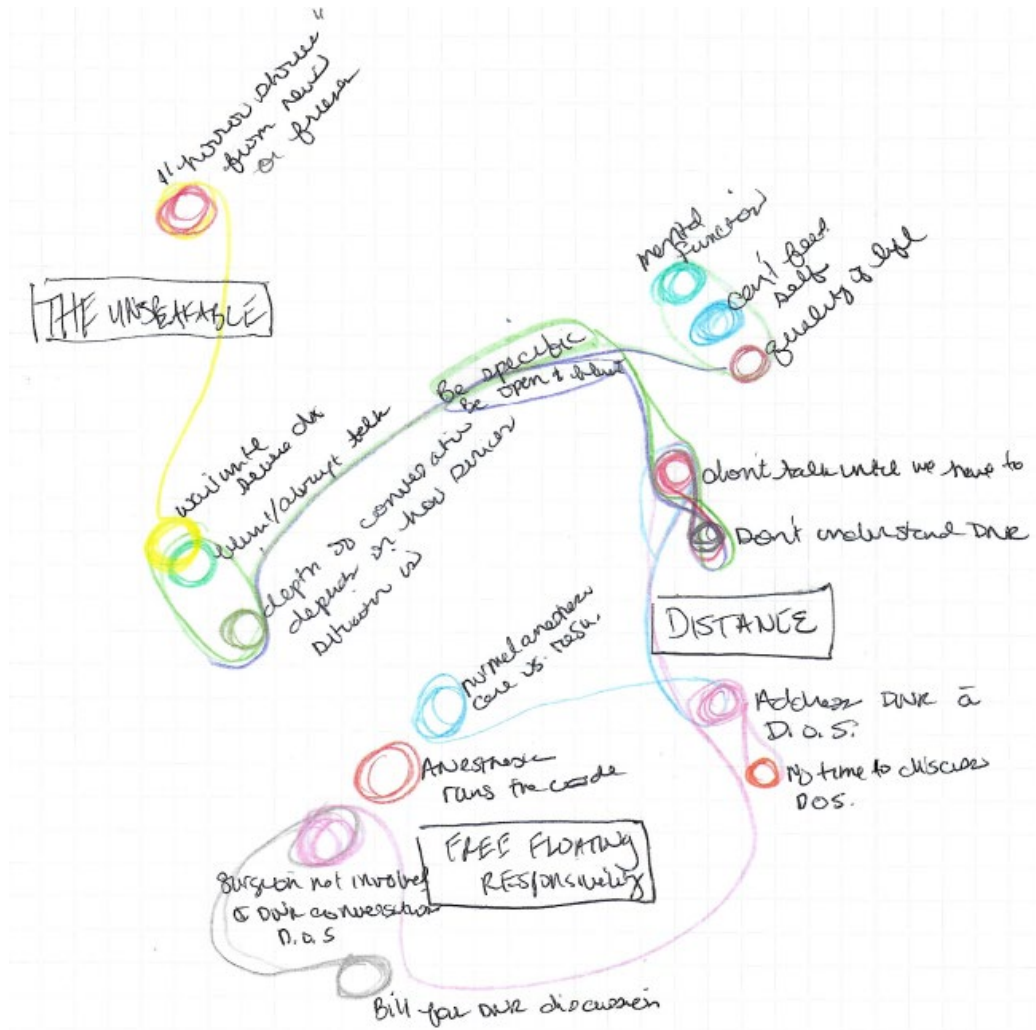 "horror stories"
from news
or friends
THE UNSPEAKABLE
mental
function
can't feed
self
quality of life
Be specific
Be open & blunt
wait until
severe dx
blunt/abrupt talk
depth of conversation
depends on how serious
situation is
don't talk until we have to
Don't understand DNR
DISTANCE
normal anesthesia
care vs. resu.
Address DNR ā
D.O.S.
No time to discuss
DOS.
Anesthesia
runs the code
FREE FLOATING
RESPONSIBILITY
Surgeon not involved
DNR conversation
D.O.S
Bill for DNR discussion